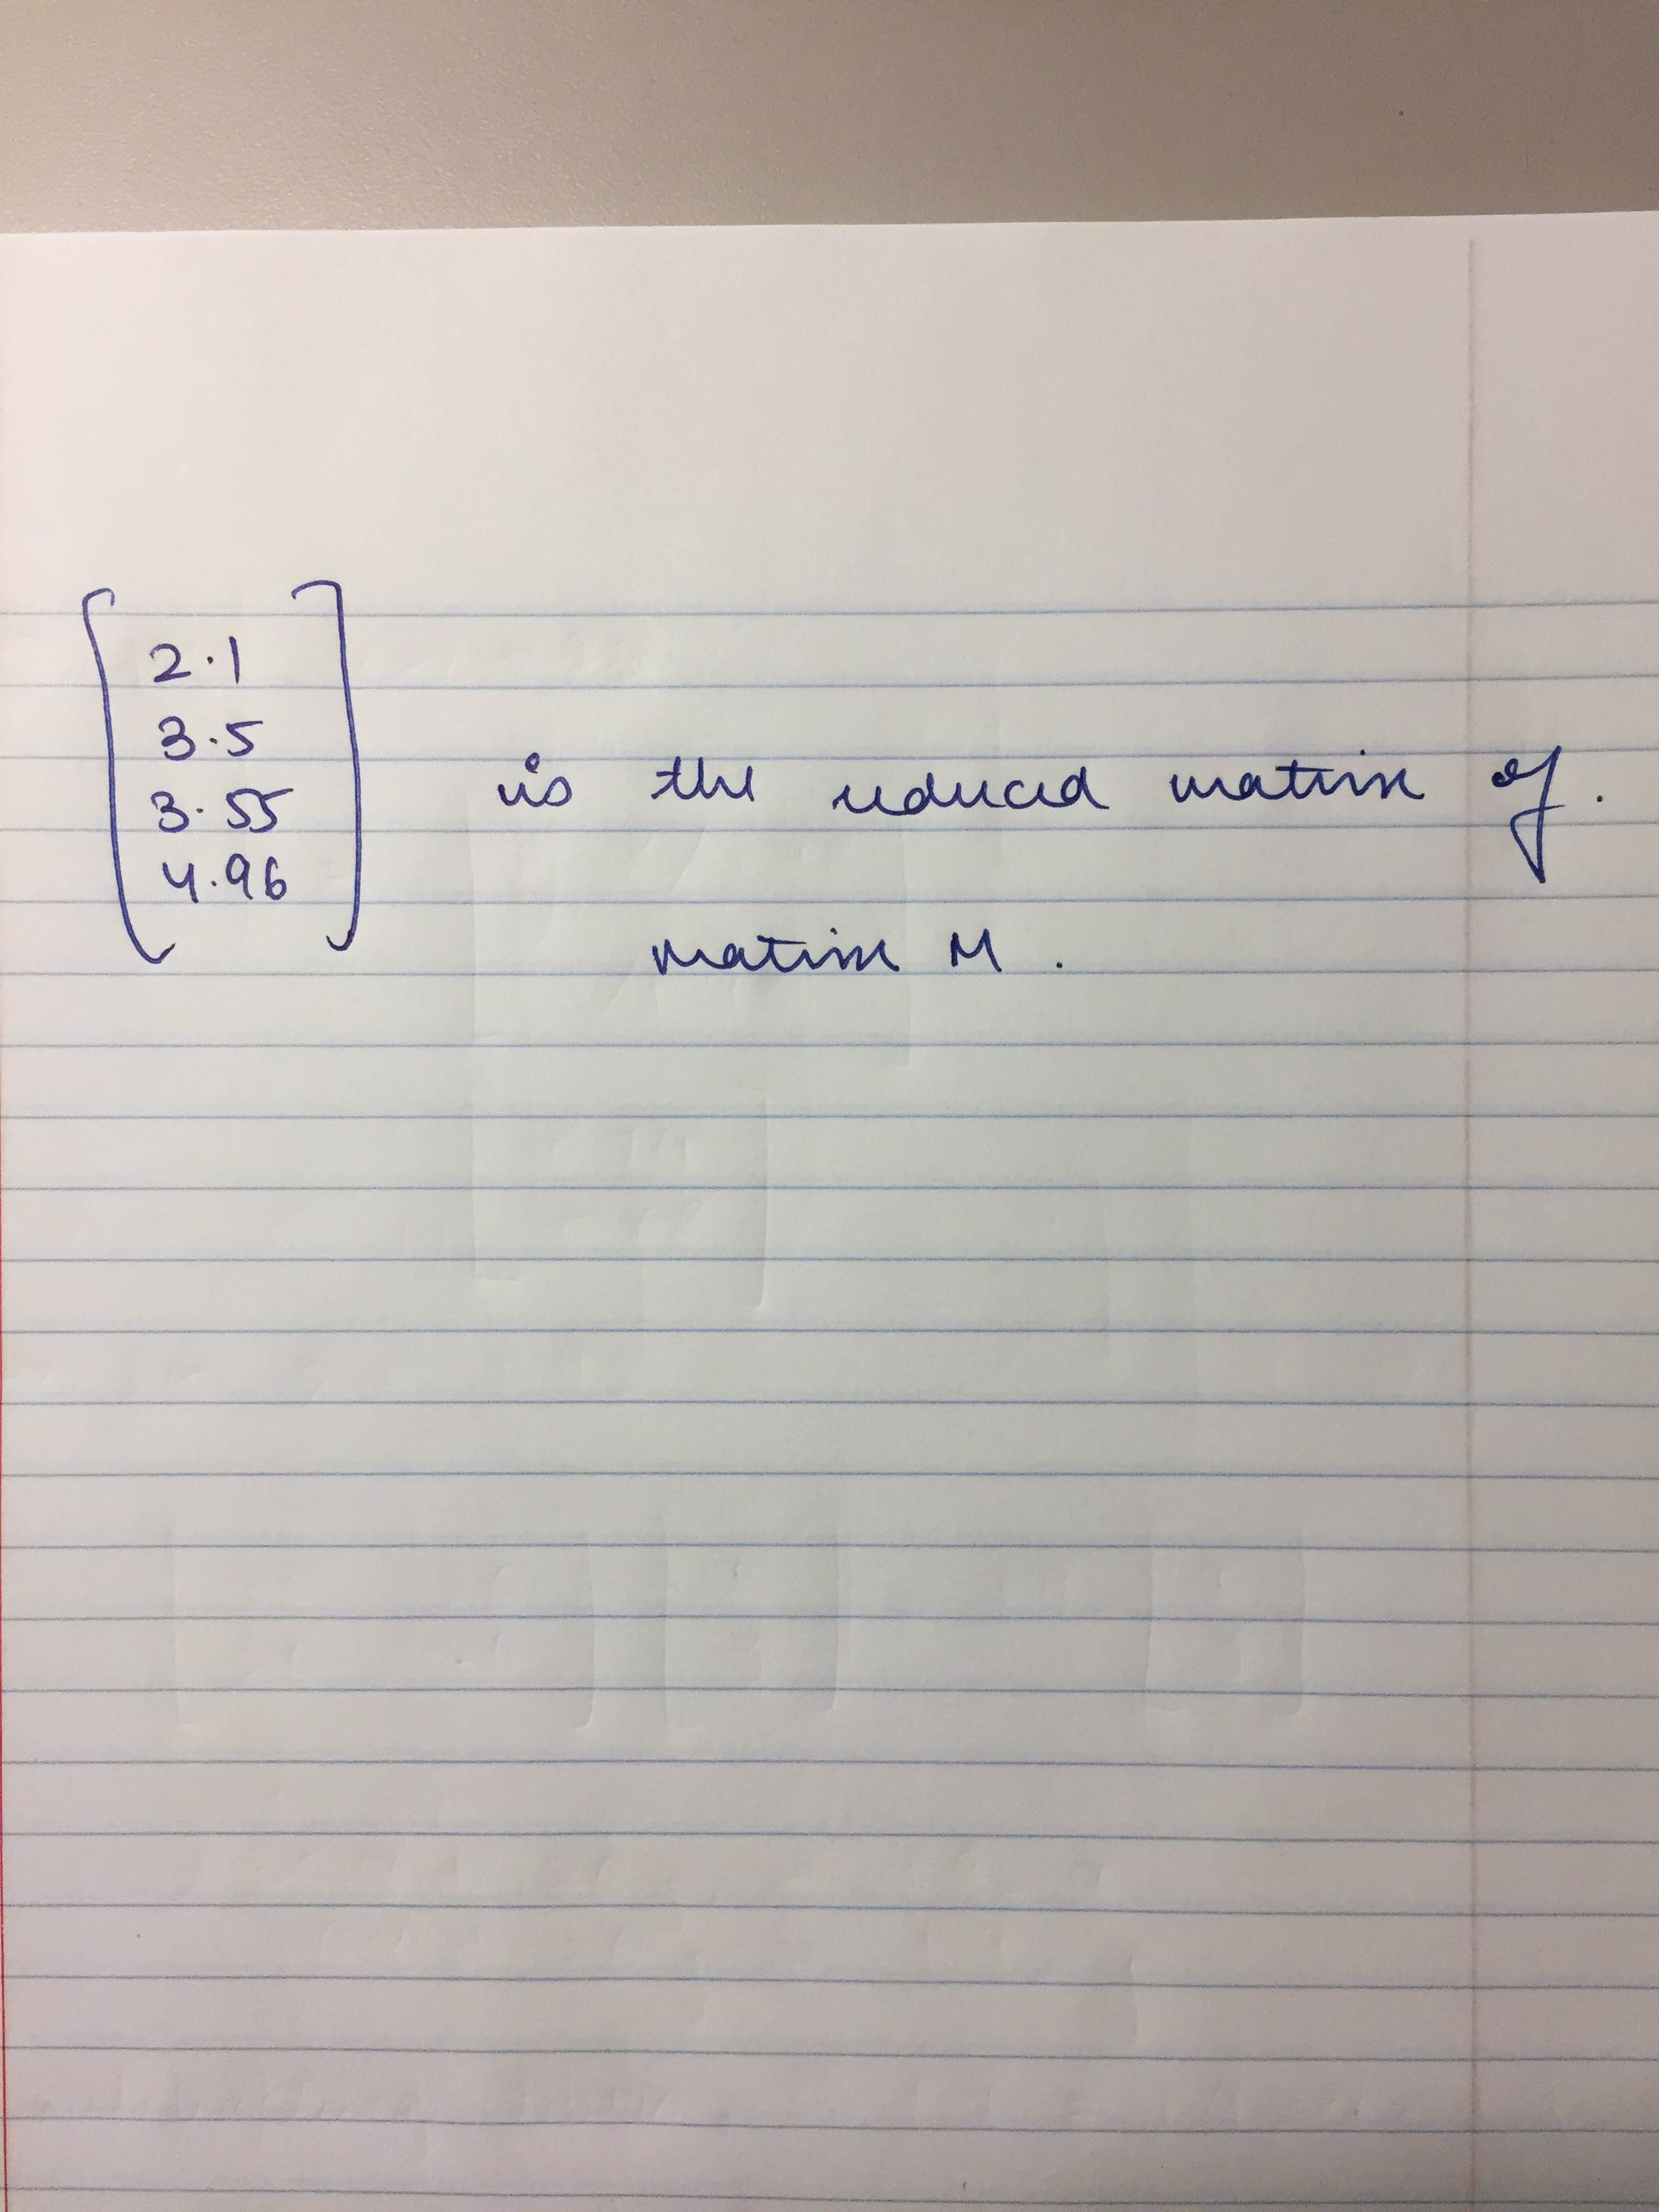 2.1
3.5
3.55
4.96
is the reduced matrix of.
matrix M.